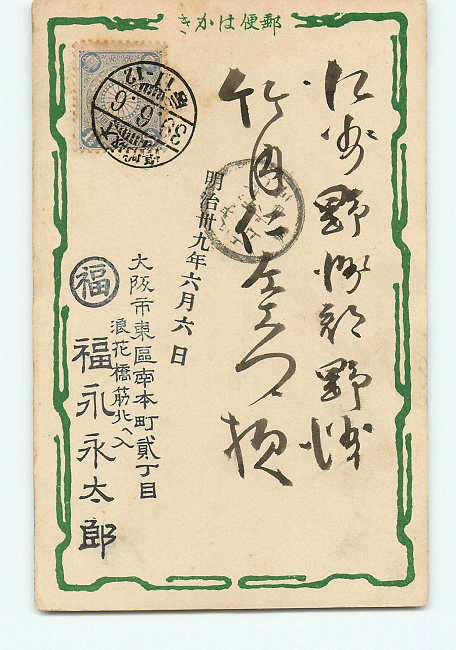 郵便はかき
江州野洲郡野洲
竹内仁左エ門様
明治卅九年六月六日
大阪市東區南本町貳丁目
浪花橋筋北へ入
福
福永永太郎
39
6-6
11-12